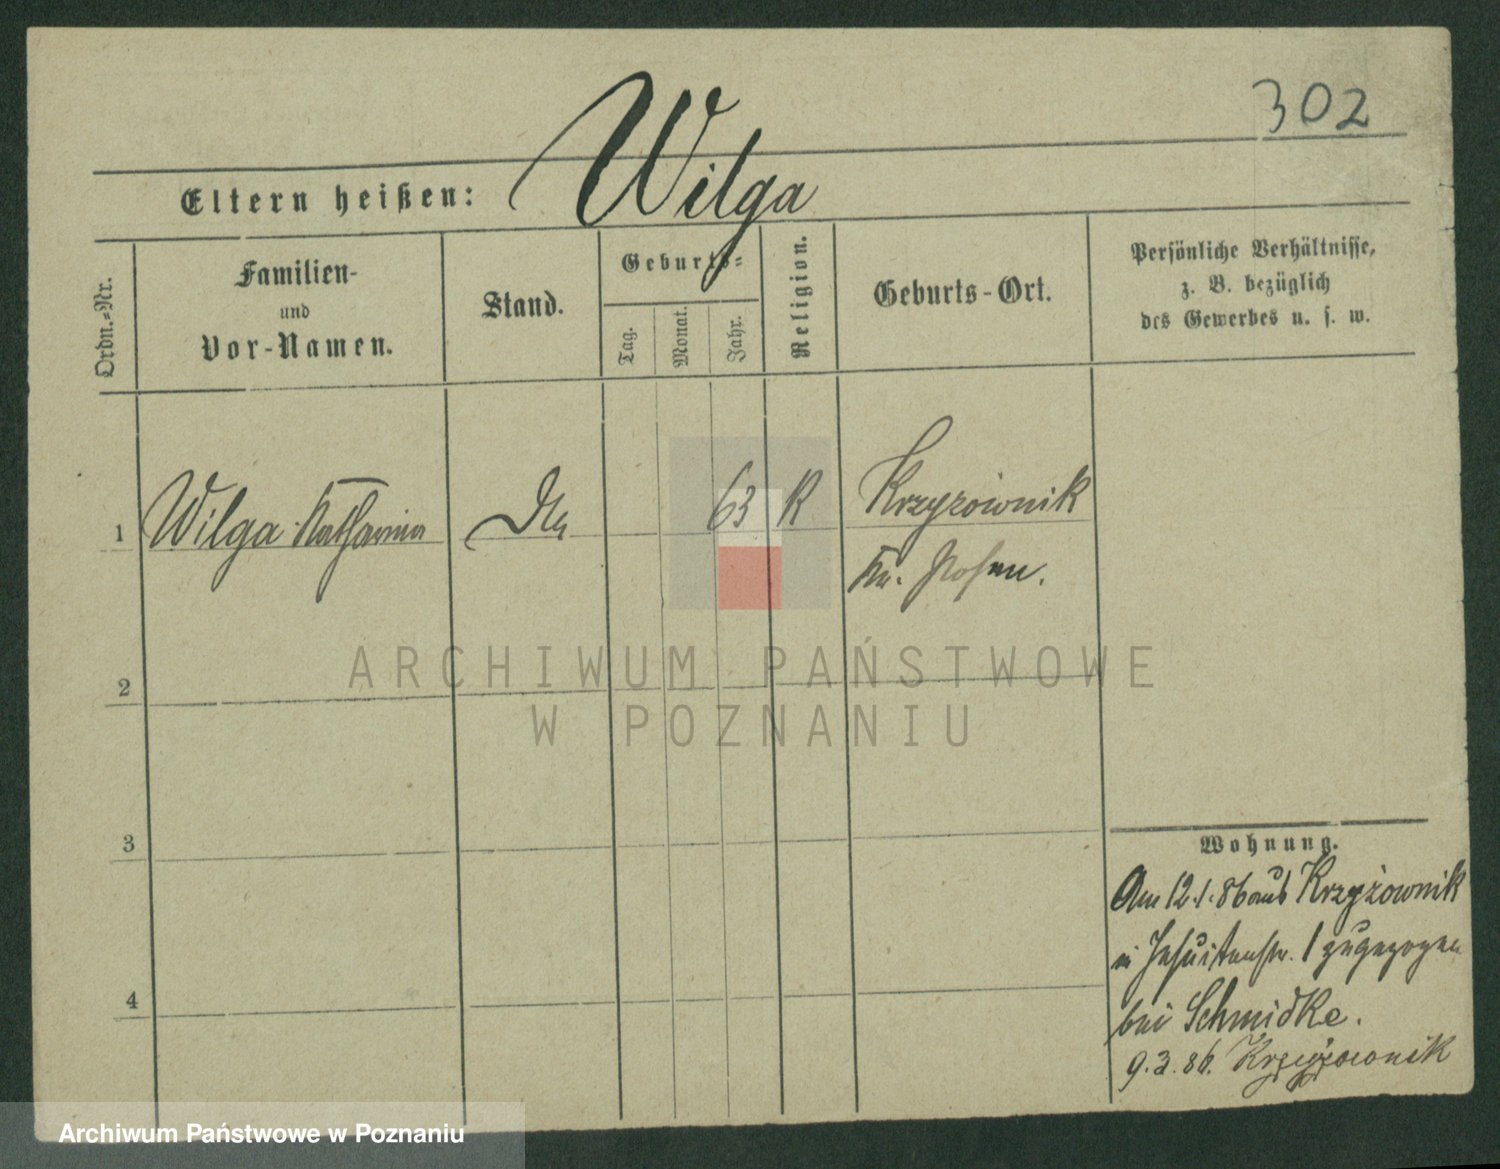 302
Eltern heißen: Wilga
Ordn.-Nr.
Familien-
und
Vor-Namen.
Stand.
Geburts-
Tag.
Monat.
Jahr.
Religion.
Geburts-Ort.
Persönliche Verhältnisse,
z. B. bezüglich
des Gewerbes u. s. w.
1 Wilga Katharina 63 K Krzyżownik
Kr. Posen.
ARCHIWUM PAŃSTWOWE
W POZNANIU
2
3
4
Wohnung.
Am 12.1.86 aus Krzyżownik
in Jesuitenstr. 1 zugezogen
bei Schmidke.
9.3.86. Krzyżownik
Archiwum Państwowe w Poznaniu